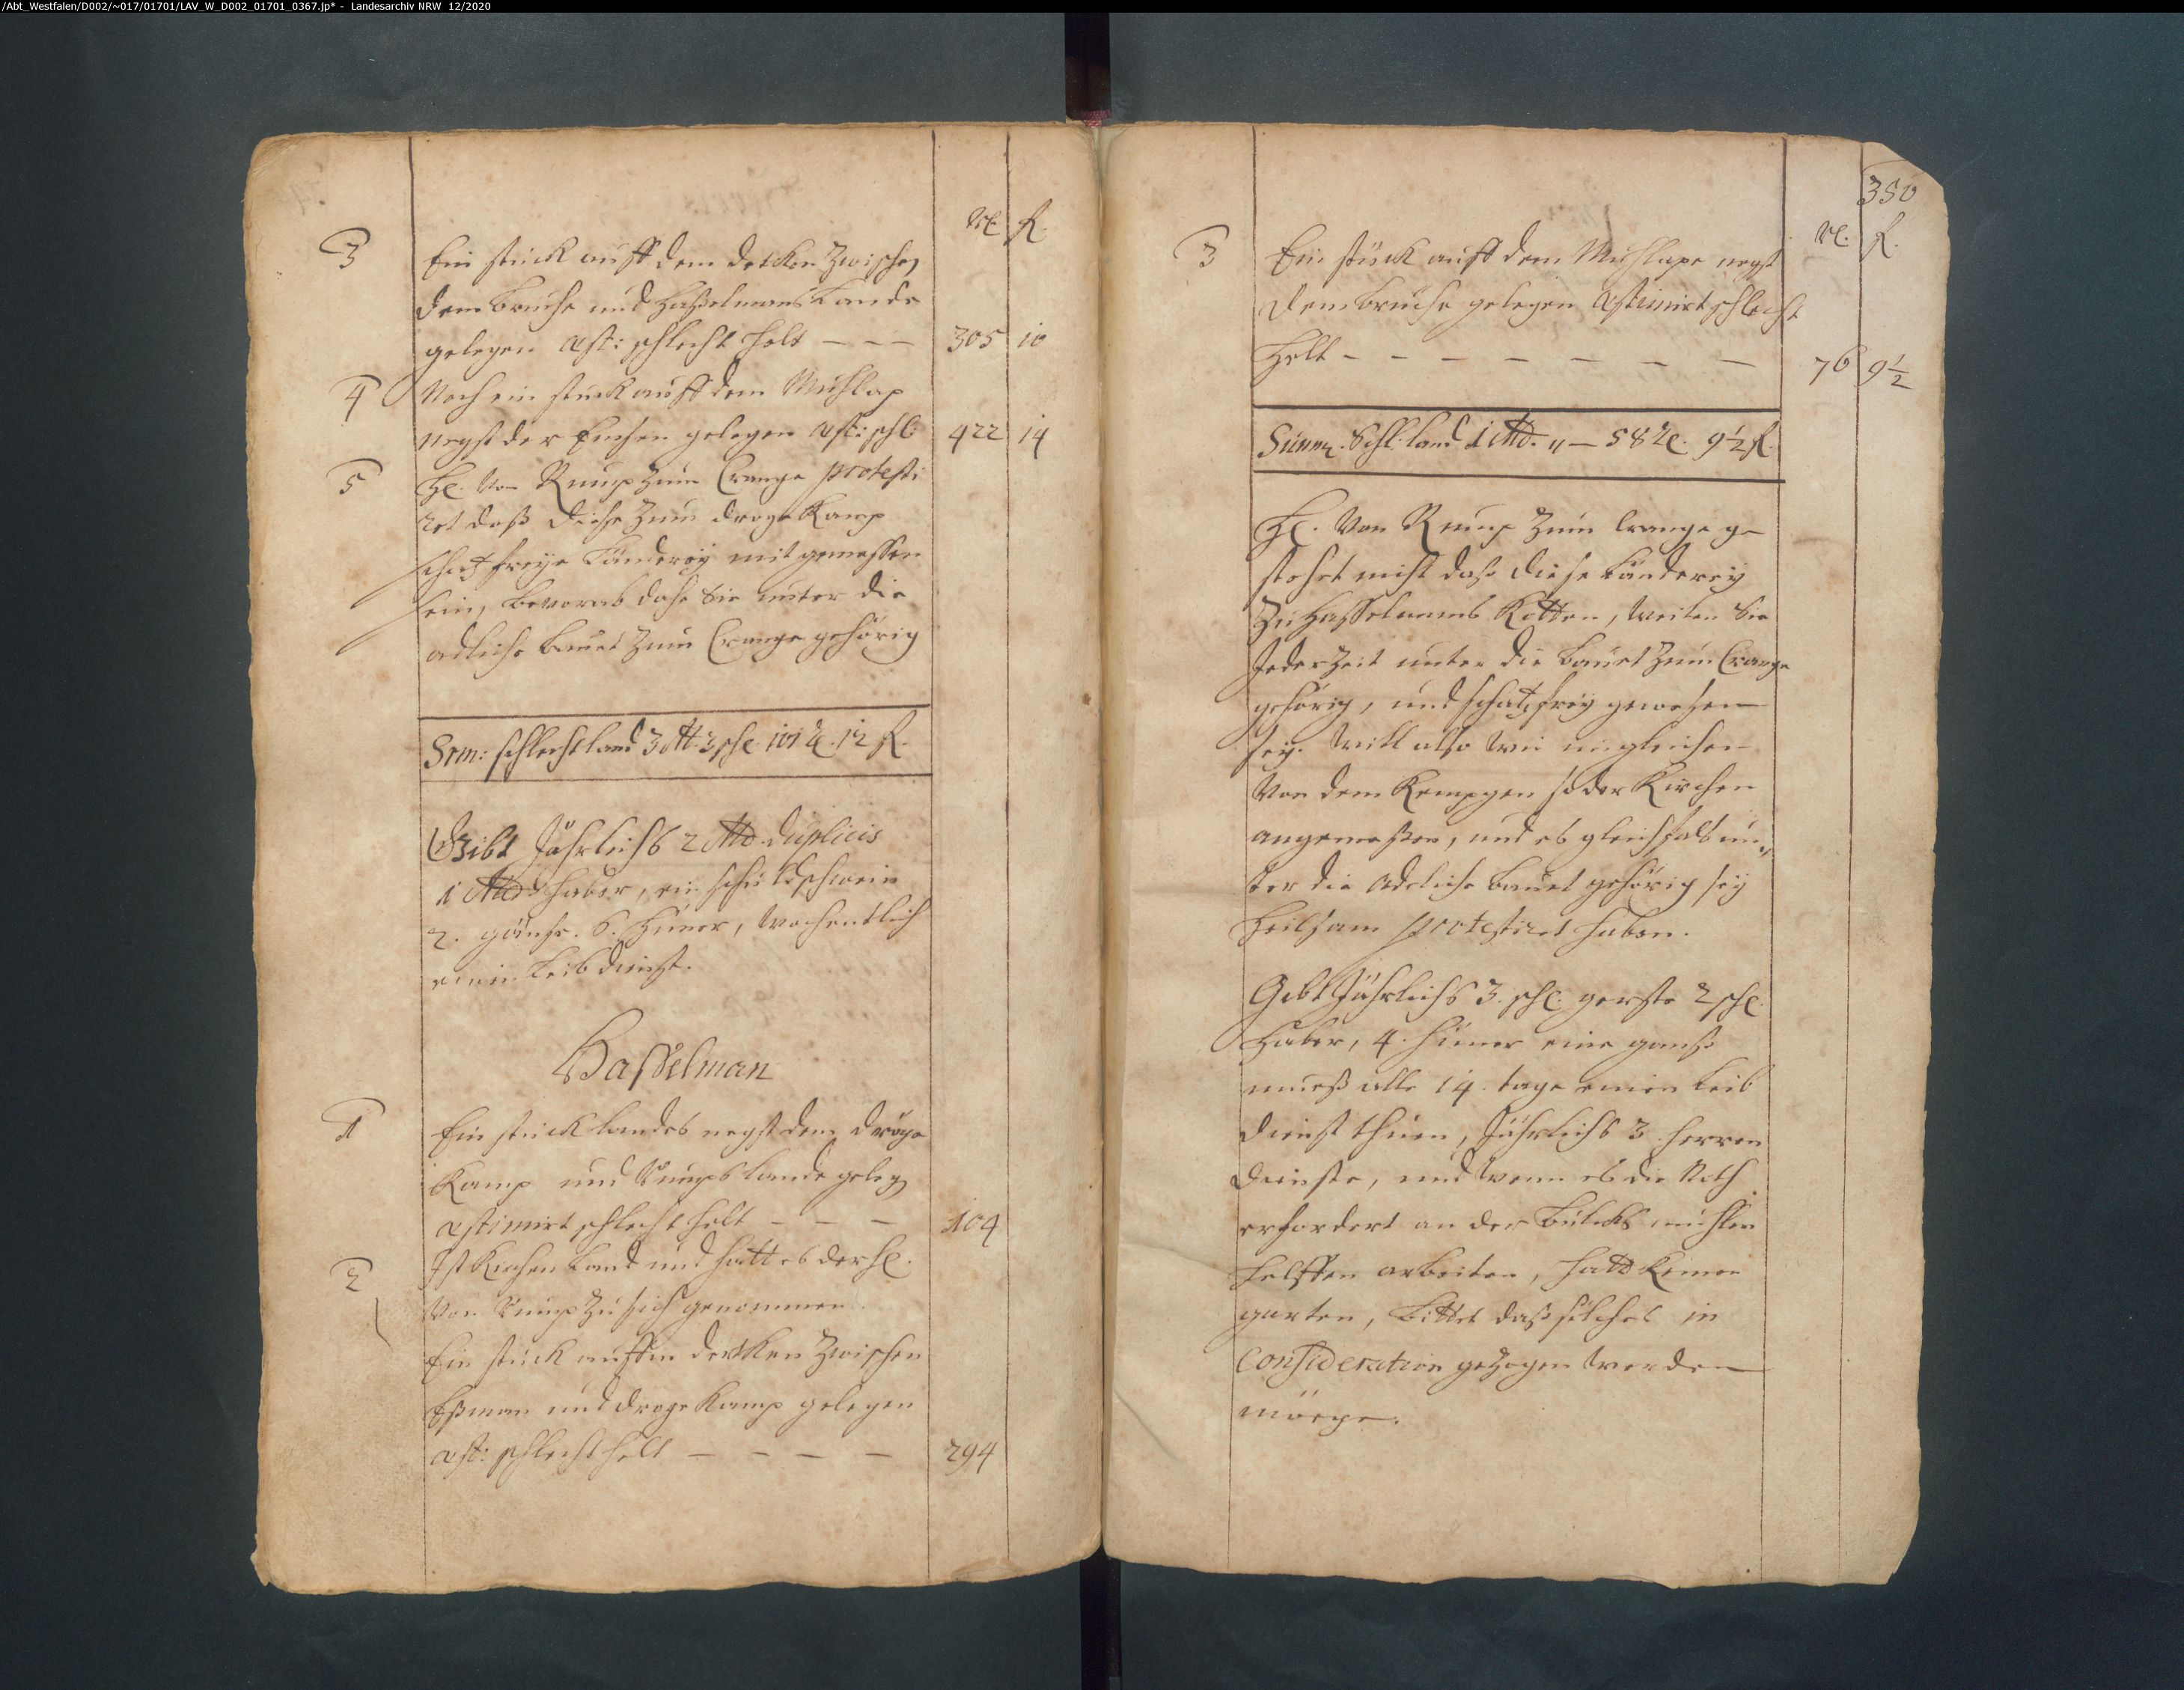 /Abt_Westfalen/D002/~017/01701/LAV_W_D002_01701_0367.jp* - Landesarchiv NRW 12/2020
Rt. f.
3 Ein stück auff dem Decken zwischen
dem Bruche und Haßelmans Lande
gelegen æst: schlecht helt — — — 305 10
4 Noch ein stuck auff dem Muhlap
negst der gelegen æst: schl: 422 14
5 H. von Rump zum Crange protesti
ret daß diese zum droge Kamp
schatz freye Länderey mit gemessen
sein, bevorab dahe Sie unter die
adliche Bauet zum Crange gehörig
Sm: schlecht land 3 M. 3 schl. 101 R. 12 f.
Gibt Jährlichs 2 Md. duplicis
1 Md haber, ein schuldschwein
2. gänse. 6. Hüner, wochentlich
einen Leibdienst.
Hasselman
1 Ein stück landes negst dem dröge
Kamp und Rumps Lande geleg
æstimirt schlecht helt — — — 104
2 Ist Kirchen Land und hatt es der H.
von Rump zu sich genommen.
Ein stück auffm decken zwischen
Eßman und droge Kamp gelegen
æst: schlecht helt — — — — 294
350
Rt. f.
3 Ein stück auff dem Muhlape negst
dem Bruche gelegen æstimirt schlecht
Helt — — — — — — — 76 9½
Summ. Schl. land 1 Md. „ — 58 R. 9½ f.
H. von Rump zum Crange ge
stehet nicht daß diese Länderey
zu Hasselmans Kotten, weilen Sie
Jederzeit unter die Bauet zum Crange
gehörig, und schatzfrey gewesen
sey. Will also wie ingleichen
von dem Kempgen so der Kirchen
angemeßen, und es gleichfals un„
ter die Adeliche Bauet gehörig sey
heilsam protestiret haben.
Gibt Jährlichs 3. schl. gerste 2 schl.
Haber, 4. Hüner eine ganß
mueß alle 14. tage einen Leib
dienst thuen, Jährlichs 3. Herren
dienste, und wenn es die Noth
erfordert an der mühlen
helffen arbeiten, hatt keinen
garten, bittet daß solches in
consideration gezogen werden
möege.